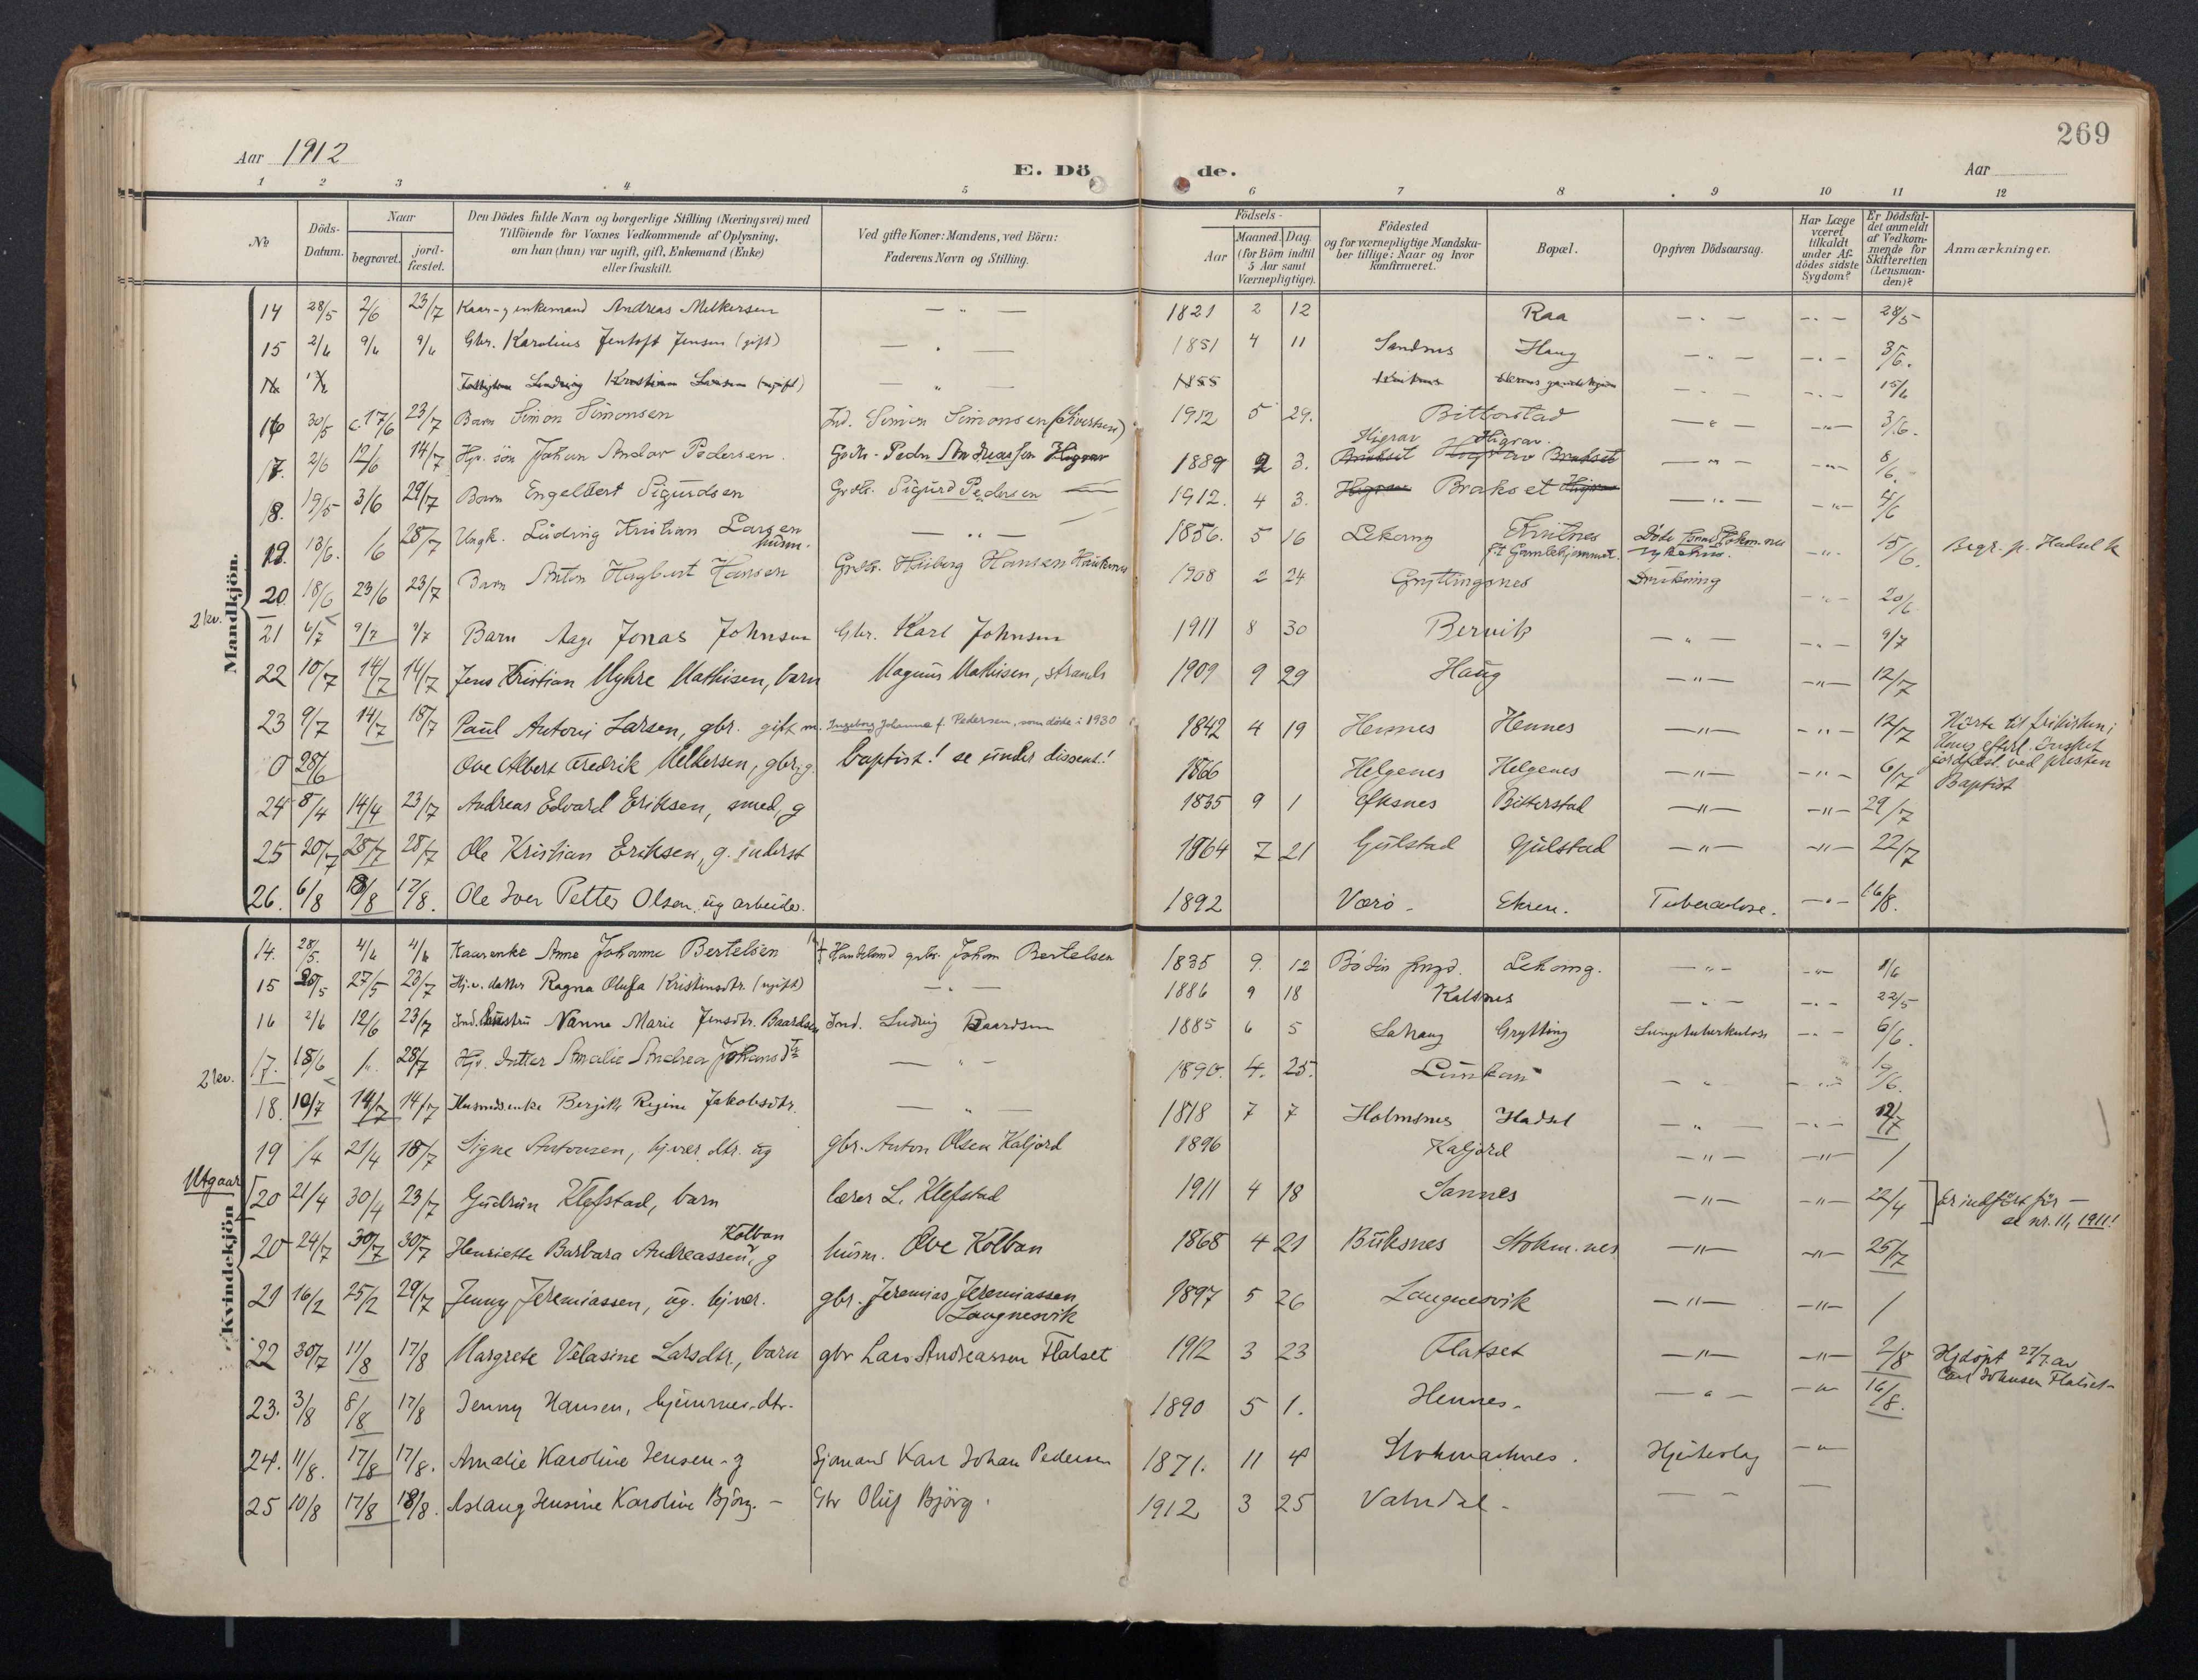 269
Aar 1912
E. Döde.
Aar
1 2 3 4 5 6 7 8 9 10 11 12
№
Döds-Datum.
Naar
begravet.
jord-fæstet.
Den Dödes fulde Navn og borgerlige Stilling (Næringsvei) med
Tilföiende for Voxnes Vedkommende af Oplysning,
om han (hun) var ugift, gift, Enkemand (Enke)
eller fraskilt.
Ved gifte Koner: Mandens, ved Börn:
Faderens Navn og Stilling.
Födsels-
Aar
Maaned. Dag.
(for Börn indtil
5 Aar samt
Værnepligtige).
Födested
og for værnepligtige Mandska-
ber tillige: Naar og hvor
konfirmeret.
Bopæl.
Opgiven Dödsaarsag.
Har Læge
været
tilkaldt
under Af-
dödes sidste
Sygdom?
Er Dödsfal-
det anmeldt
af Vedkom-
mende for
Skifteretten
(Lensman-
den)?
Anmærkninger.
Mandkjön.
14 28/5 2/6 23/7 Kaar- enkemand Andreas Melkersen — " — 1821 2 12 Raa — " — — " — 28/5
15 2/6 9/6 9/6 Gbr. Karolius Jentoft Jensen (gift) — " — 1851 4 11 Sandnes Haug — " — — " — 3/6.
Ludvig Kristian Larsen (ugift) — " — 1855 — " — — " — 15/6
16 30/5 c. 17/6 23/7 Barn Simon Simonsen Ind. Simon Simonsen (Sivertsen) 1912 5 29. Bitterstad — " — — " — 3/6.
17. 2/6 12/6 14/7 Hjv. sön Johan Andor Pedersen. Gbr. Peder Andreassen Higrav 1889 2 3. Higrav Higrav. Brakset Brakset — " — — " — 8/6.
18. 19/5 3/6 29/7 Barn Engelbert Sigurdsen Grdbr. Sigurd Pedersen 1912. 4 3. Higrav Brakset Higrav — " — — " — 4/6
19. 13/6. /6 28/7 Ungk. Ludvig Kristian Larsen husm. — " — 1856. 5 16 Lekang
Gamlehjemmet. Döde paa Stokm.nes
sykehus. — " — 15/6. Begr. p. Hadsel k
20. 18/6 23/6 23/7 Barn Anton Hagbart Hansen Grdbr. Hauberg Hansen Haukenes 1908 2 24 Grytlingsnes Drukning — " — 20/6
2 lev.
21 6/7 9/7 9/7 Barn Aage Jonas Johnsen Gbr. Karl Johnsen 1911 8 30 Bervik — " — — " — 9/7
22 10/7 14/7 14/7 Jens Kristian Myhre Mathisen, barn Magnus Mathisen, strands 1909 9 29 Haug — " — — " — 12/7
23 9/7 14/7 18/7 Paul Antoni Larsen, gbr. gift m. Ingeborg Johanna f. Pedersen, som döde i 1930 1842 4 19 Hennes Hennes — " — — " — 12/7 Hörte til frikirken;
Hans efterl. önsket
jordfæst. ved presten
0 28/6 Ove Albert Fredrik Melkersen, gbr, g. baptist! se under dissent.! 1866 Helgenes Helgenes — " — — " — 6/7 Baptist
24 8/4 14/4 23/7 Andreas Edvard Eriksen, smed, g 1835 9 1 Øksnes Bitterstad — " — — " — 29/7
25 20/7 28/7 28/7 Ole Kristian Eriksen, g. inderst 1864 7 21 Gulstad Gulstad — " — — " — 22/7
26. 6/8 18/8 17/8. Ole Iver Petter Olsen, ug arbeider. 1892 Værö - Ekren. Tuberculose. — " — 16/8.
Kvindekjön
14. 28/5. 4/6 4/6 Kaarenke Anne Johanna Bertelsen † Handelsmd grbr. Johan Bertelsen 1835 9. 12 Bodin Lekang. — " — — " — 1/6
15 20/5 27/5 23/7 Hj.v. datter Ragna Olufa Kristensdtr. (ugift) — " — 1886 9 18 Kaldnes — " — — " — 22/5
16 2/6 12/6 23/7 Ind. hustru Nanna Marie Jensdtr. Baardsen Ind. Ludvig Baardsen 1885 6 5 Lahaug Grytting Lungetuberkulose — " — 6/6.
2 lev.
17. 18/6 /. 28/7 Hjv. datter Amalie Andrea Johansdtr — " — 1890. 4. 25. Lunkan — " — — " — 19/6.
18. 10/7 14/7 14/7 Husmdsenke Bergitte Regine Jakobsdtr. — " — 1818 7 7 Holmsnes Hadsel — " — — " — 12/7
19 /4 21/4 18/7 Signe Antonsen, hjvær. dtr. ug gbr. Anton Olsen Kaljord 1896 Kaljord — " — — " — /
Utgaar
20 21/4 30/4 23/7 Gudrun Klefstad, barn lærer L. Klefstad 1911 4 18 Sannes — " — — " — 22/4 Er indfört för —
se nr. 11, 1911!
20 24/7 30/7 30/7 Henriette Barbara Andreassen, g Kolban husm. Ove Kolban 1868 4 21 Buksnes Stokm.nes — " — — " — 25/7
21 16/2 25/2 29/7 Jenny Jeremiassen, ug. hjvær. gbr. Jeremias Jeremiassen
Langnesvik 1897 5 26 Langnesvik — " — — " — /
22 30/7 11/8 17/8 Margrete Vilasine Larsdtr., barn gbr Lars Andreassen Flatset 1912 3 23 Flatset — " — — " — 2/8 Hjdöpt 27/7. av
Carl Johnsen Flatset-
23. 3/8 8/8 17/8 Jenny Hansen, hjemmev.dtr. 1890 5 1. Hennes. — " — — " — 16/8.
24. 11/8. 17/8 17/8. Amalie Karoline Jensen - g Sjömand Karl Johan Pedersen 1871. 11 4 Stokmarknes. Hjerteslag — " —
25 10/8 17/8 18/8. Aslaug Hansine Karoline Bjørg. - Gbr Oluf Bjørg. 1912 3 25 Vatndal - — — — —